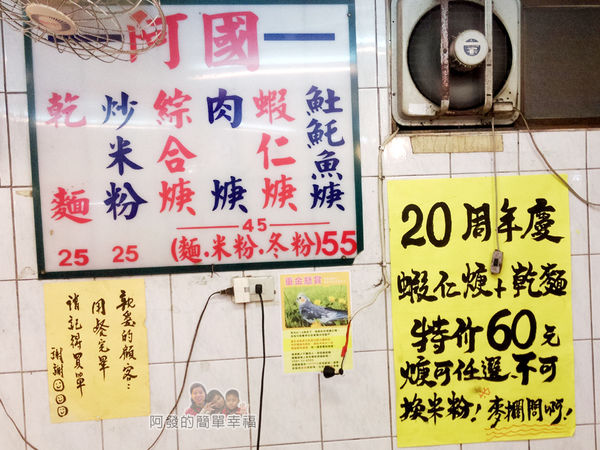 阿國
𩵚魠魚焿
蝦仁焿
肉焿
綜合焿
炒米粉
乾麵
45
(麵.米粉.冬粉)55
25
25
重金懸賞
親愛的顧客:
用餐完畢
請記得買單
謝謝
20周年慶
蝦仁焿+乾麵
特价60元
焿可任選、不可
換米粉！麥擱問啊！
阿發的簡單幸福